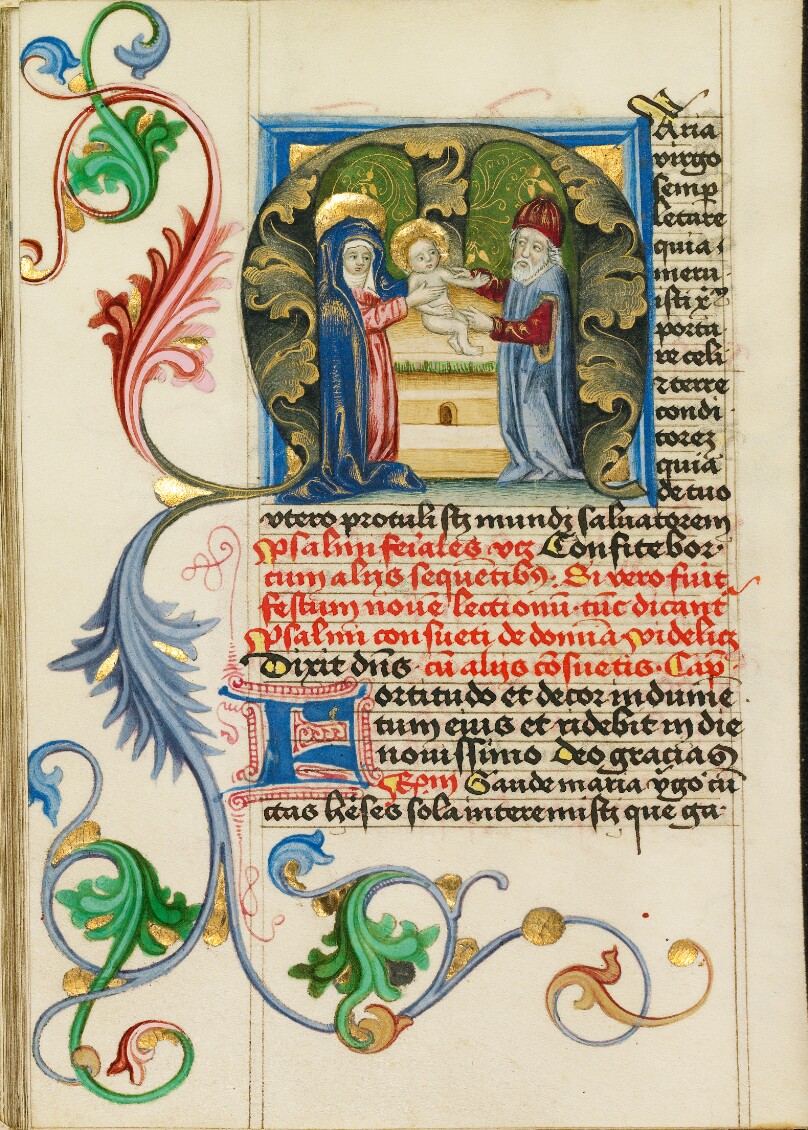 Maria
virgo
semp
letare
quia
meru
isti xpm
porta
re celi
⁊ terre
condi
torez
quia
de tuo
vtero protulistj mundj saluatorem
psalmi feriales vtz Confitebor
cum alijs sequetibꝯ. Si vero fuit
festum noue lectionu tuc dicant
psalmi consueti de domina videlicz
Dixit dns cu alijs cosuetis. Cap
Fortitudo et decor indume
tum eius et ridebit in die
nouissimo Deo gracias
Gaude maria vgo cu
ctas heses sola interemistj que ga